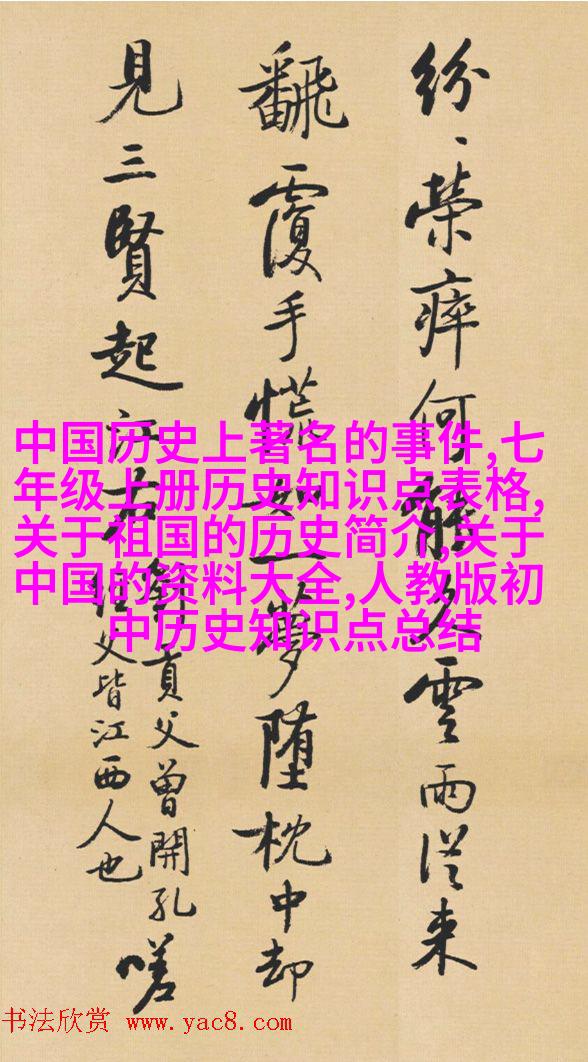 紛、榮瘁何能久雲雨從来
飜覆手慌如一夢堕枕中却
見三賢起江右
劉貢父曾開孔
經父皆江西人也
嗟
中国历史上著名的事件,七
年级上册历史知识点表格,
关于祖国的历史简介,关于
中国的资料大全,人教版初
中历史知识点总结
书法欣赏 www.yac8.com